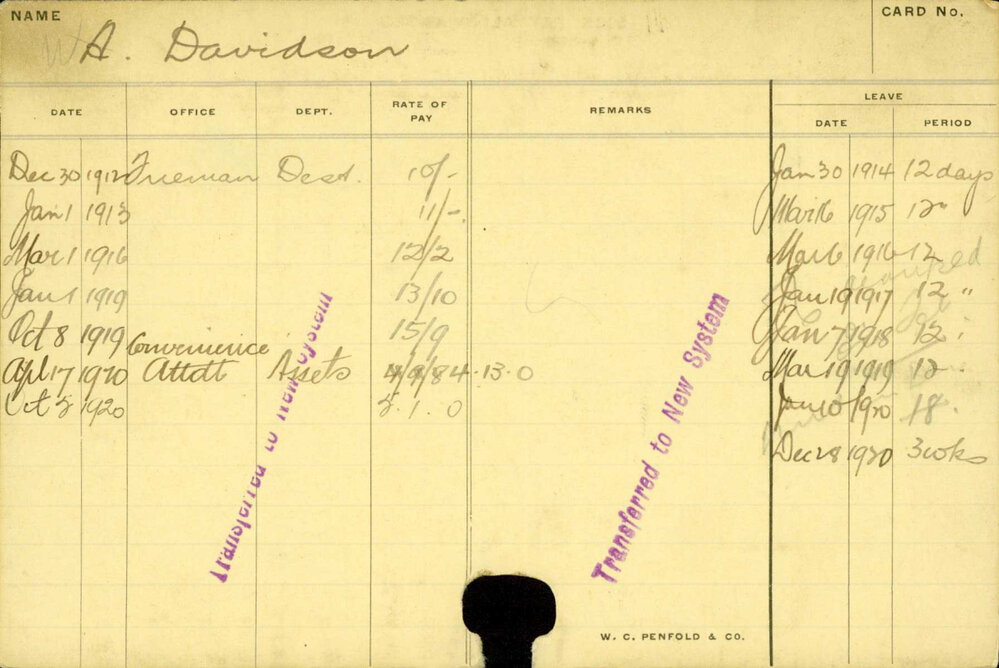 NAME
CARD No.
A. Davidson
DATE OFFICE DEPT. RATE OF PAY REMARKS LEAVE
DATE PERIOD
Dec 30 1912 Fireman Dest. 10/- Jan 30 1914 12 days
Jan 1 1913 11/- Mar 16 1915 12 "
Mar 1 1916 12/2 Mar 6 1916 12
Jan 1 1919 13/10 Jan 19 1917 12 "
Oct 8 1919 15/9 Jan 7 1918 12 "
Convenience
Apl 17 1920 Attdt Assets 4.13.0 Mar 19 1919 12
Oct 1920 5.1.0 Jan 10 1920 18.
Dec 28 1920 3 wks
Transferred to New System
Transferred to New System
W. C. PENFOLD & CO.